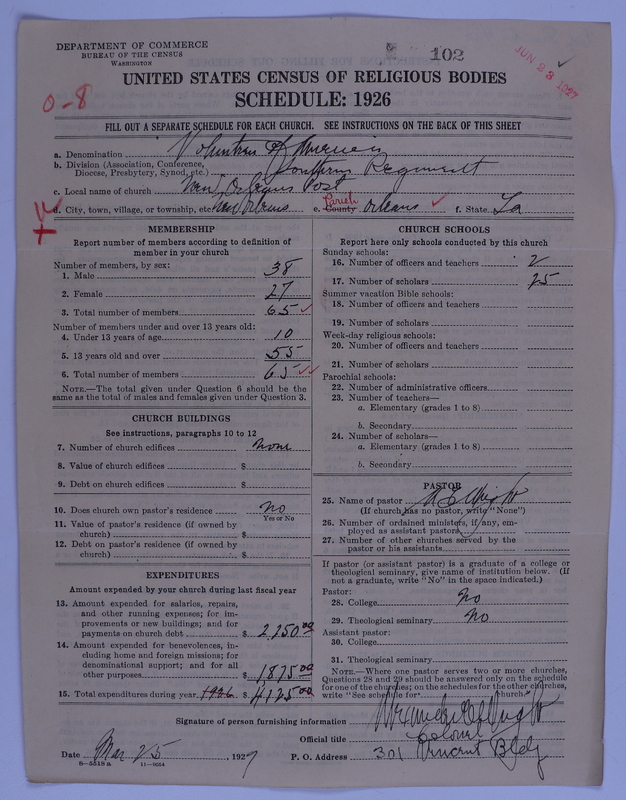 DEPARTMENT OF COMMERCE
BUREAU OF THE CENSUS
WASHINGTON
102
JUN 23 1927
UNITED STATES CENSUS OF RELIGIOUS BODIES
SCHEDULE: 1926
0-8
FILL OUT A SEPARATE SCHEDULE FOR EACH CHURCH. SEE INSTRUCTIONS ON THE BACK OF THIS SHEET
a. Denomination Volunteers of America
b. Division (Association, Conference, Diocese, Presbytery, Synod, etc.) Southern Regiment
c. Local name of church New Orleans Post
d. City, town, village, or township, etc. New Orleans e. County Parish Orleans f. State La
MEMBERSHIP
Report number of members according to definition of
member in your church
Number of members, by sex:
1. Male 38
2. Female 27
3. Total number of members 65
Number of members under and over 13 years old:
4. Under 13 years of age 10
5. 13 years old and over 55
6. Total number of members 65
NOTE.—The total given under Question 6 should be the
same as the total of males and females given under Question 3.
CHURCH BUILDINGS
See instructions, paragraphs 10 to 12
7. Number of church edifices none
8. Value of church edifices $
9. Debt on church edifices $
10. Does church own pastor's residence No
Yes or No
11. Value of pastor's residence (if owned by
church) $
12. Debt on pastor's residence (if owned by
church) $
EXPENDITURES
Amount expended by your church during last fiscal year
13. Amount expended for salaries, repairs,
and other running expenses; for im-
provements or new buildings; and for
payments on church debt $ 2250.00
14. Amount expended for benevolences, in-
cluding home and foreign missions; for
denominational support; and for all
other purposes $ 1875.00
15. Total expenditures during year 1926 $ 4125.00
CHURCH SCHOOLS
Report here only schools conducted by this church
Sunday schools:
16. Number of officers and teachers 2
17. Number of scholars 25
Summer vacation Bible schools:
18. Number of officers and teachers
19. Number of scholars
Week-day religious schools:
20. Number of officers and teachers
21. Number of scholars
Parochial schools:
22. Number of administrative officers
23. Number of teachers—
a. Elementary (grades 1 to 8)
b. Secondary
24. Number of scholars—
a. Elementary (grades 1 to 8)
b. Secondary
PASTOR
25. Name of pastor
(If church has no pastor, write "None")
26. Number of ordained ministers, if any, em-
ployed as assistant pastors
27. Number of other churches served by the
pastor or his assistants
If pastor (or assistant pastor) is a graduate of a college or
theological seminary, give name of institution below. (If
not a graduate, write "No" in the space indicated.)
Pastor:
28. College No
29. Theological seminary No
Assistant pastor:
30. College
31. Theological seminary
NOTE.—Where one pastor serves two or more churches,
Questions 28 and 29 should be answered only on the schedule
for one of the churches; on the schedules for the other churches,
write "See schedule for church."
Signature of person furnishing information
Official title Colonel
Date Mar 25, 1927 P. O. Address 301 Vincent Bldg
8-5518a 11-9054